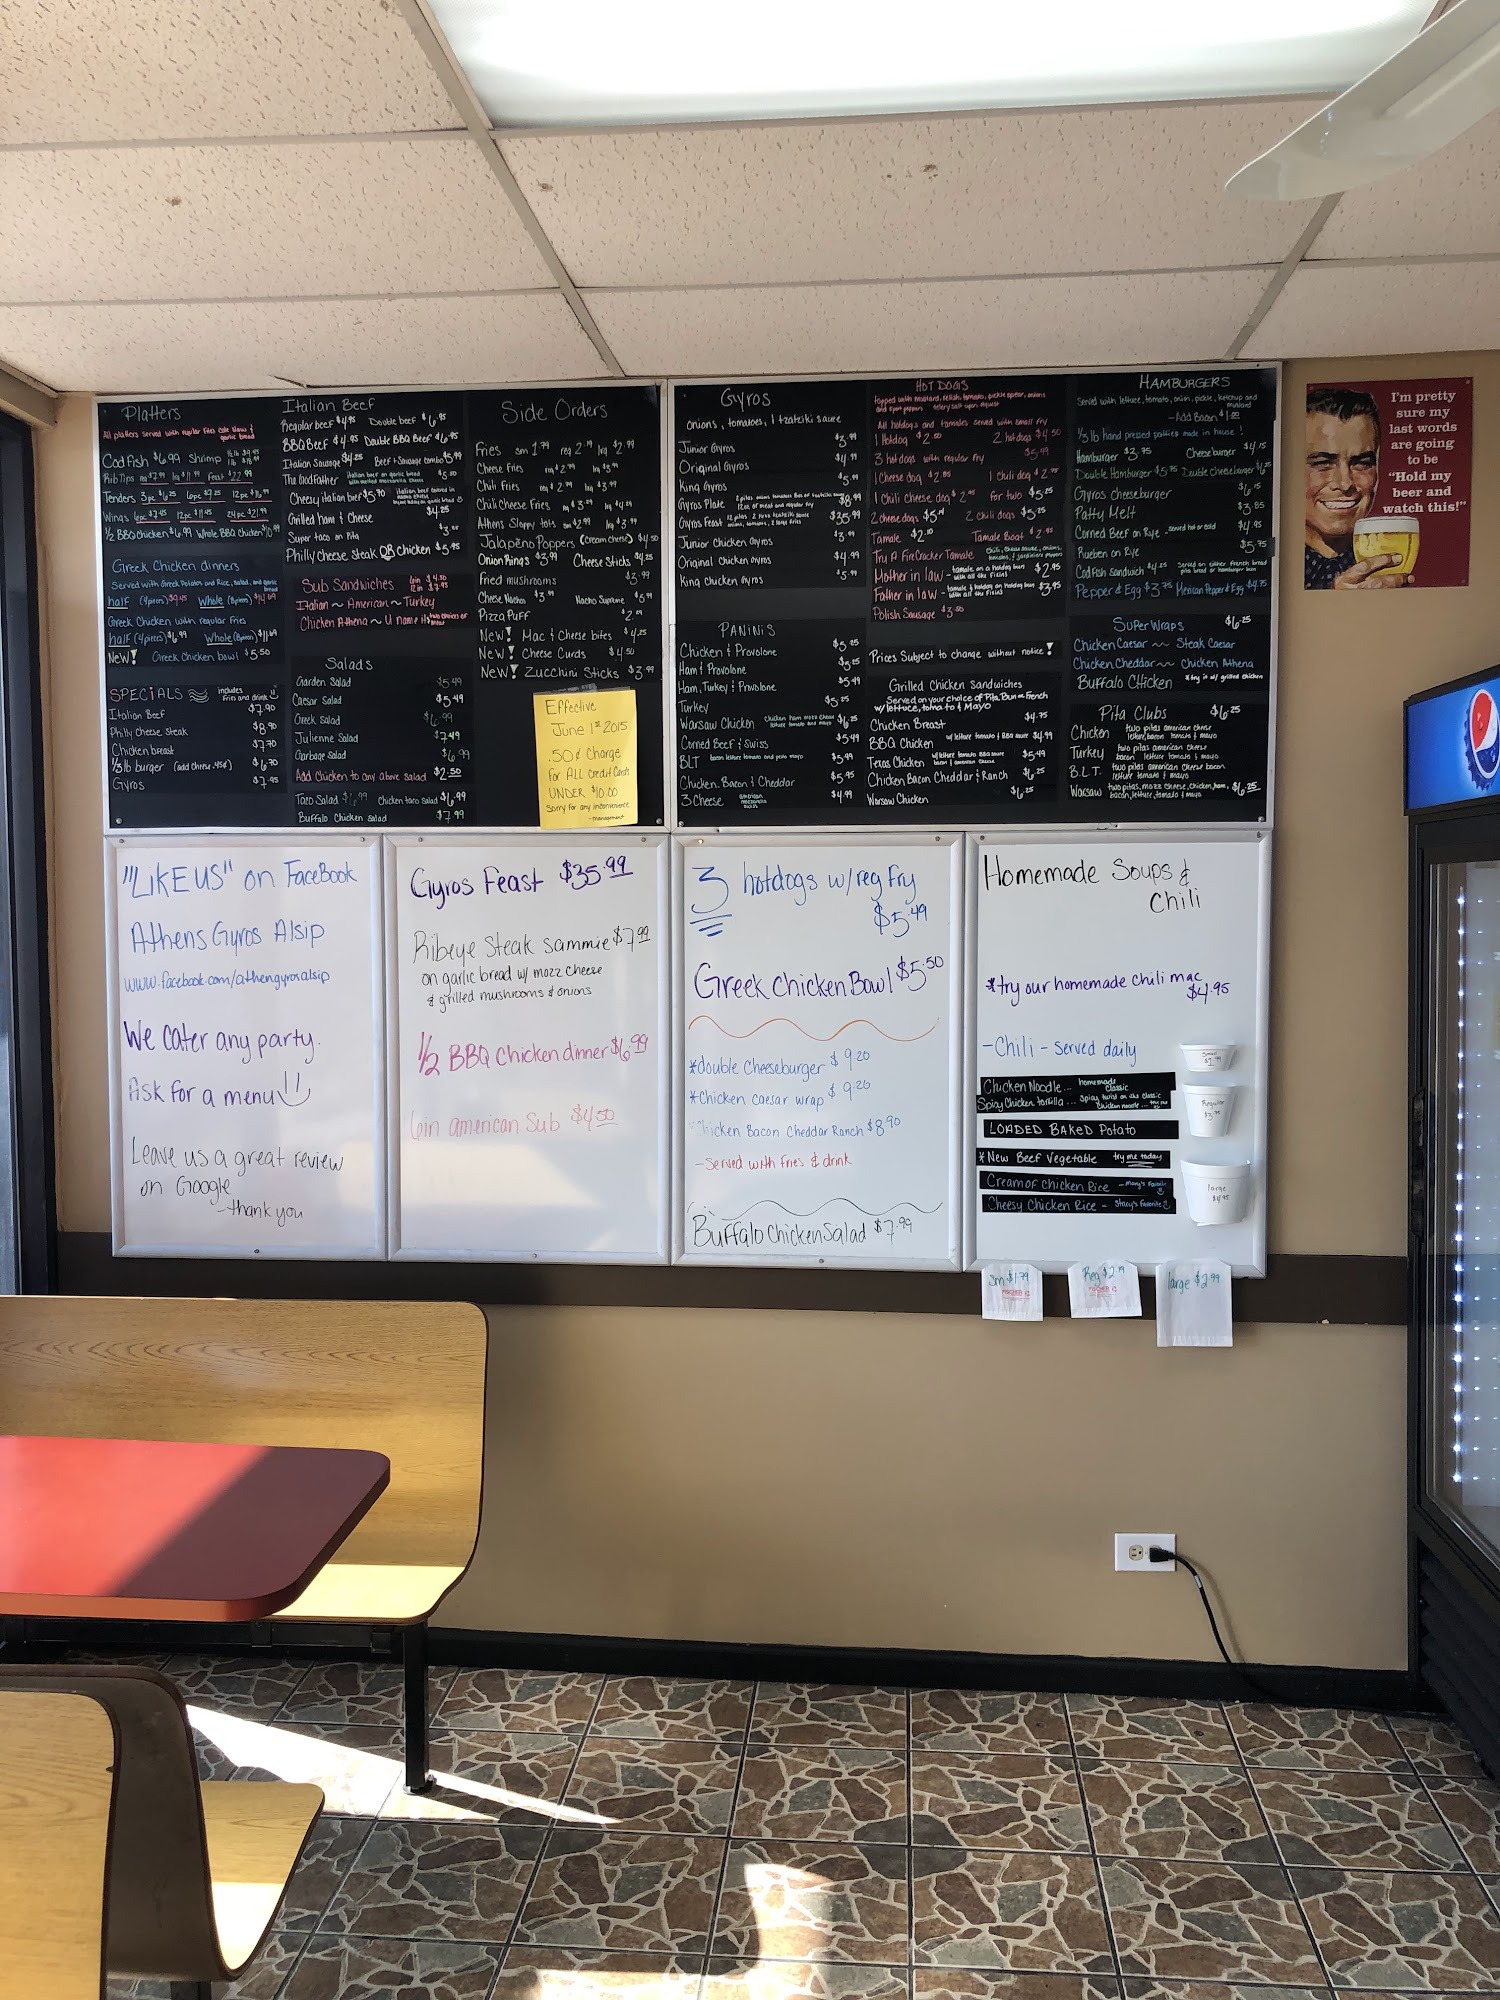 Platters
All platters served with regular Fries Cole Slaw &
garlic bread
Cod Fish $6.99 Shrimp
Rib Tips
Tenders 3pc $6.25 6pc $9.25 12pc
Wings 6pc 12pc $11.45 24pc $21.99
1/2 BBQ Chicken $6.99 Whole BBQ Chicken
Greek Chicken dinners
Served with Greek Potatoes and Rice, salad, and garlic
bread
half (4 pieces) $9.45 Whole (8 pieces)
Greek Chicken with regular Fries
half (4 pieces) $6.99 Whole (8 pieces) $11.69
NEW! Greek Chicken bowl $5.50
SPECiALS includes
Fries and drink
Italian Beef $7.90
Philly Cheese Steak $8.90
Chicken breast $7.70
1/3 lb burger (add cheese .45¢) $6.70
Gyros $7.95
Italian Beef
Regular beef $4.95 Double beef $6.95
BBQ Beef $4.95 Double BBQ Beef $6.95
Italian Sausage $4.25 Beef & Sausage combo $5.99
The GodFather Italian beef on garlic bread
with melted mozzarella cheese $5.50
Cheesy italian beef $5.90
Grilled ham & Cheese $4.25
Super taco on Pita
Philly Cheese Steak OR Chicken $5.95
Sub Sandwiches 6in $4.50
12in
Italian ~ American ~ Turkey
Chicken Athena ~ U name it
Salads
Garden Salad $5.49
Caesar Salad $5.49
Greek Salad $6.99
Julienne Salad $7.49
Garbage Salad $6.99
Add Chicken to any above salad $2.50
Taco Salad $6.99 Chicken taco salad $6.99
Buffalo Chicken salad $7.99
Side Orders
Fries sm 1.79 reg 2.19 lrg $2.99
Cheese Fries
Chili Fries
Chili Cheese Fries
Athens Sloppy tots
Jalapeño Poppers (cream cheese) $4.50
Onion Rings $3.99 Cheese Sticks $4.25
Fried mushrooms $3.99
Cheese Nachos $3.99 Nacho Supreme $5.99
Pizza Puff
New! Mac & Cheese bites $4.25
New! Cheese Curds $4.50
New! Zucchini Sticks $3.99
Effective
June 1st 2015
.50¢ Charge
for ALL credit Cards
UNDER $10.00
Sorry for any inconvenience
-management
Gyros
Onions, tomatoes, 1 tzatziki sauce
Junior Gyros $3.99
Original Gyros $4.99
King Gyros $5.99
Gyros Plate $8.99
Gyros Feast $35.99
Junior Chicken Gyros $3.99
Original Chicken Gyros $4.99
King Chicken Gyros $5.99
PANiNiS
Chicken & Provolone $5.25
Ham & Provolone $5.25
Ham, Turkey & Provolone $5.49
Turkey $5.25
Warsaw Chicken $6.25
Corned Beef & Swiss $5.49
BLT bacon lettuce tomato and pesto mayo $5.99
Chicken, Bacon & Cheddar $5.95
3 Cheese $4.99
HOT DOGS
topped with mustard, relish, tomato, pickle spear, onions
and sport peppers celery salt upon request
All hotdogs and tamales served with small fry
1 Hotdog $2.50 2 hotdogs $4.50
3 hotdogs with regular fry $5.99
1 Cheese dog $2.85 1 Chili dog
1 Chili cheese dog for two $5.25
2 cheese dogs 2 Chili dogs $5.25
Tamale Tamale Boat
Try A FireCracker Tamale
Mother in law - tamale on a hotdog bun
with all the fixins $2.95
Father in law - tamale & hotdog on a hotdog bun
with all the fixins $3.95
Polish Sausage $3.50
Prices Subject to change without notice!
Grilled Chicken Sandwiches
Served on your choice of Pita Bun or French
w/ lettuce, tomato & Mayo
Chicken Breast $4.75
BBQ Chicken w/ lettuce tomato & BBQ sauce $4.99
Texas Chicken $5.49
Chicken Bacon Cheddar & Ranch $6.25
Warsaw Chicken $6.25
HAMBURGERS
Served with lettuce, tomato, onion, pickle, ketchup and
mustard
-Add Bacon $1.00
1/3 lb hand pressed patties made in house!
Hamburger $3.75 Cheeseburger $4.15
Double Hamburger $5.75 Double cheeseburger
Gyros cheeseburger $6.15
Patty Melt $3.85
Corned Beef on Rye - served hot or cold $4.95
Rueben on Rye $5.75
Codfish Sandwich $4.25 Served on either French bread
pita bread or hamburger bun
Pepper & Egg $3.75 Mexican Pepper & Egg $4.75
SUPER WRAPS $6.25
Chicken Caesar ~~ Steak Caesar
Chicken Cheddar ~~ Chicken Athena
Buffalo Chicken *try it w/ grilled chicken
Pita Clubs $6.25
Chicken two pitas american cheese
lettuce, bacon tomato & mayo
Turkey two pitas american cheese
bacon lettuce tomato & mayo
B.L.T. two pitas american cheese bacon
lettuce tomato & mayo
Warsaw two pitas, mozz cheese, chicken, ham,
bacon, lettuce, tomato & mayo $6.25
I'm pretty
sure my
last words
are going
to be
"Hold my
beer and
watch this!"
"LIKE US" on FaceBook
Athens Gyros Alsip
www.facebook.com/athengyrosalsip
We cater any party.
Ask for a menu
Leave us a great review
on Google
-thank you
Gyros Feast $35.99
Ribeye Steak Sammie $7.99
on garlic bread w/ mozz cheese
& grilled mushrooms & onions
1/2 BBQ Chicken dinner $6.99
6in american Sub $4.50
3 hotdogs w/ reg fry
$5.49
Greek Chicken Bowl $5.50
*double Cheeseburger $9.20
*Chicken caesar wrap $9.20
Chicken Bacon Cheddar Ranch $8.90
-Served with fries & drink
Buffalo Chicken Salad $7.99
Homemade Soups &
Chili
*try our homemade chili mac
$4.95
-Chili - served daily
Chicken Noodle... homemade
classic
Spicy Chicken tortilla... Spicy twist on the classic
Chicken noodle...
LOADED BAKED POTATO
*New Beef Vegetable try me today
Cream of Chicken Rice - Mary's Favorite
Cheesy Chicken Rice - Stacy's Favorite
Small
Regular
large
$4.95
Sm $1.79
Reg $2.19
large $2.99